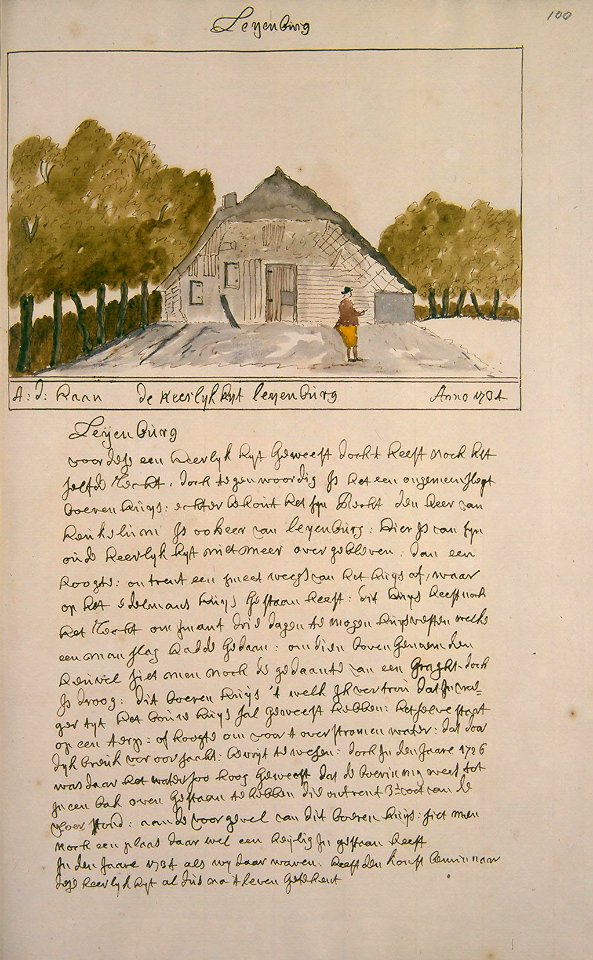 Leyenburg
100
A: d: Haan de Heerlykhyt leyenburg Anno 1734
Leyenburg
voor dese een heerlyk hyt geweest docht heeft noch het
selfde Recht. doch tegenwoordig Is het een ongemeen slegt
boeren huys: echter behout het syn Recht den heer van
Is ook heer van leyenburg: hier Is van syn
oude heerlyk hyt niet meer overgebleven. dan een
hoogte: ontrent een smeet weegs van het huys af, waar
op het Edelmans huys gestaan heeft: dit huys heeft noch
het Recht om imant drie dagen te mogen huysvesten welke
een manslag hadde gedaan: om dien bovengenoemden
heuvel siet men noch de gedaante van een Graght doch
Is droog: dit boeren huys 't welk Ik vertrou dat In vroe-
ger tyt het bouwhuys sal geweest hebben: het selve staat
op een terp: of hoogte om voor t overstromen water: dat door
dyk breuk veroorsaakt: bevryt te wesen: doch In den Jaare 1726
was daar het water soo hoog geweest dat de boerin nog weest tot
In een bak oven gestaan te hebben die ontrent 3 voet van de
vloer stond: aan de voor gevel van dit boeren huys: siet men
noch een plaas daar wel een heylig In gestaan heeft
In den Jaare 1734 als wy daar waren. heeft den konst beminnaar
dese heerlykhyt aldus na t leven geteekent